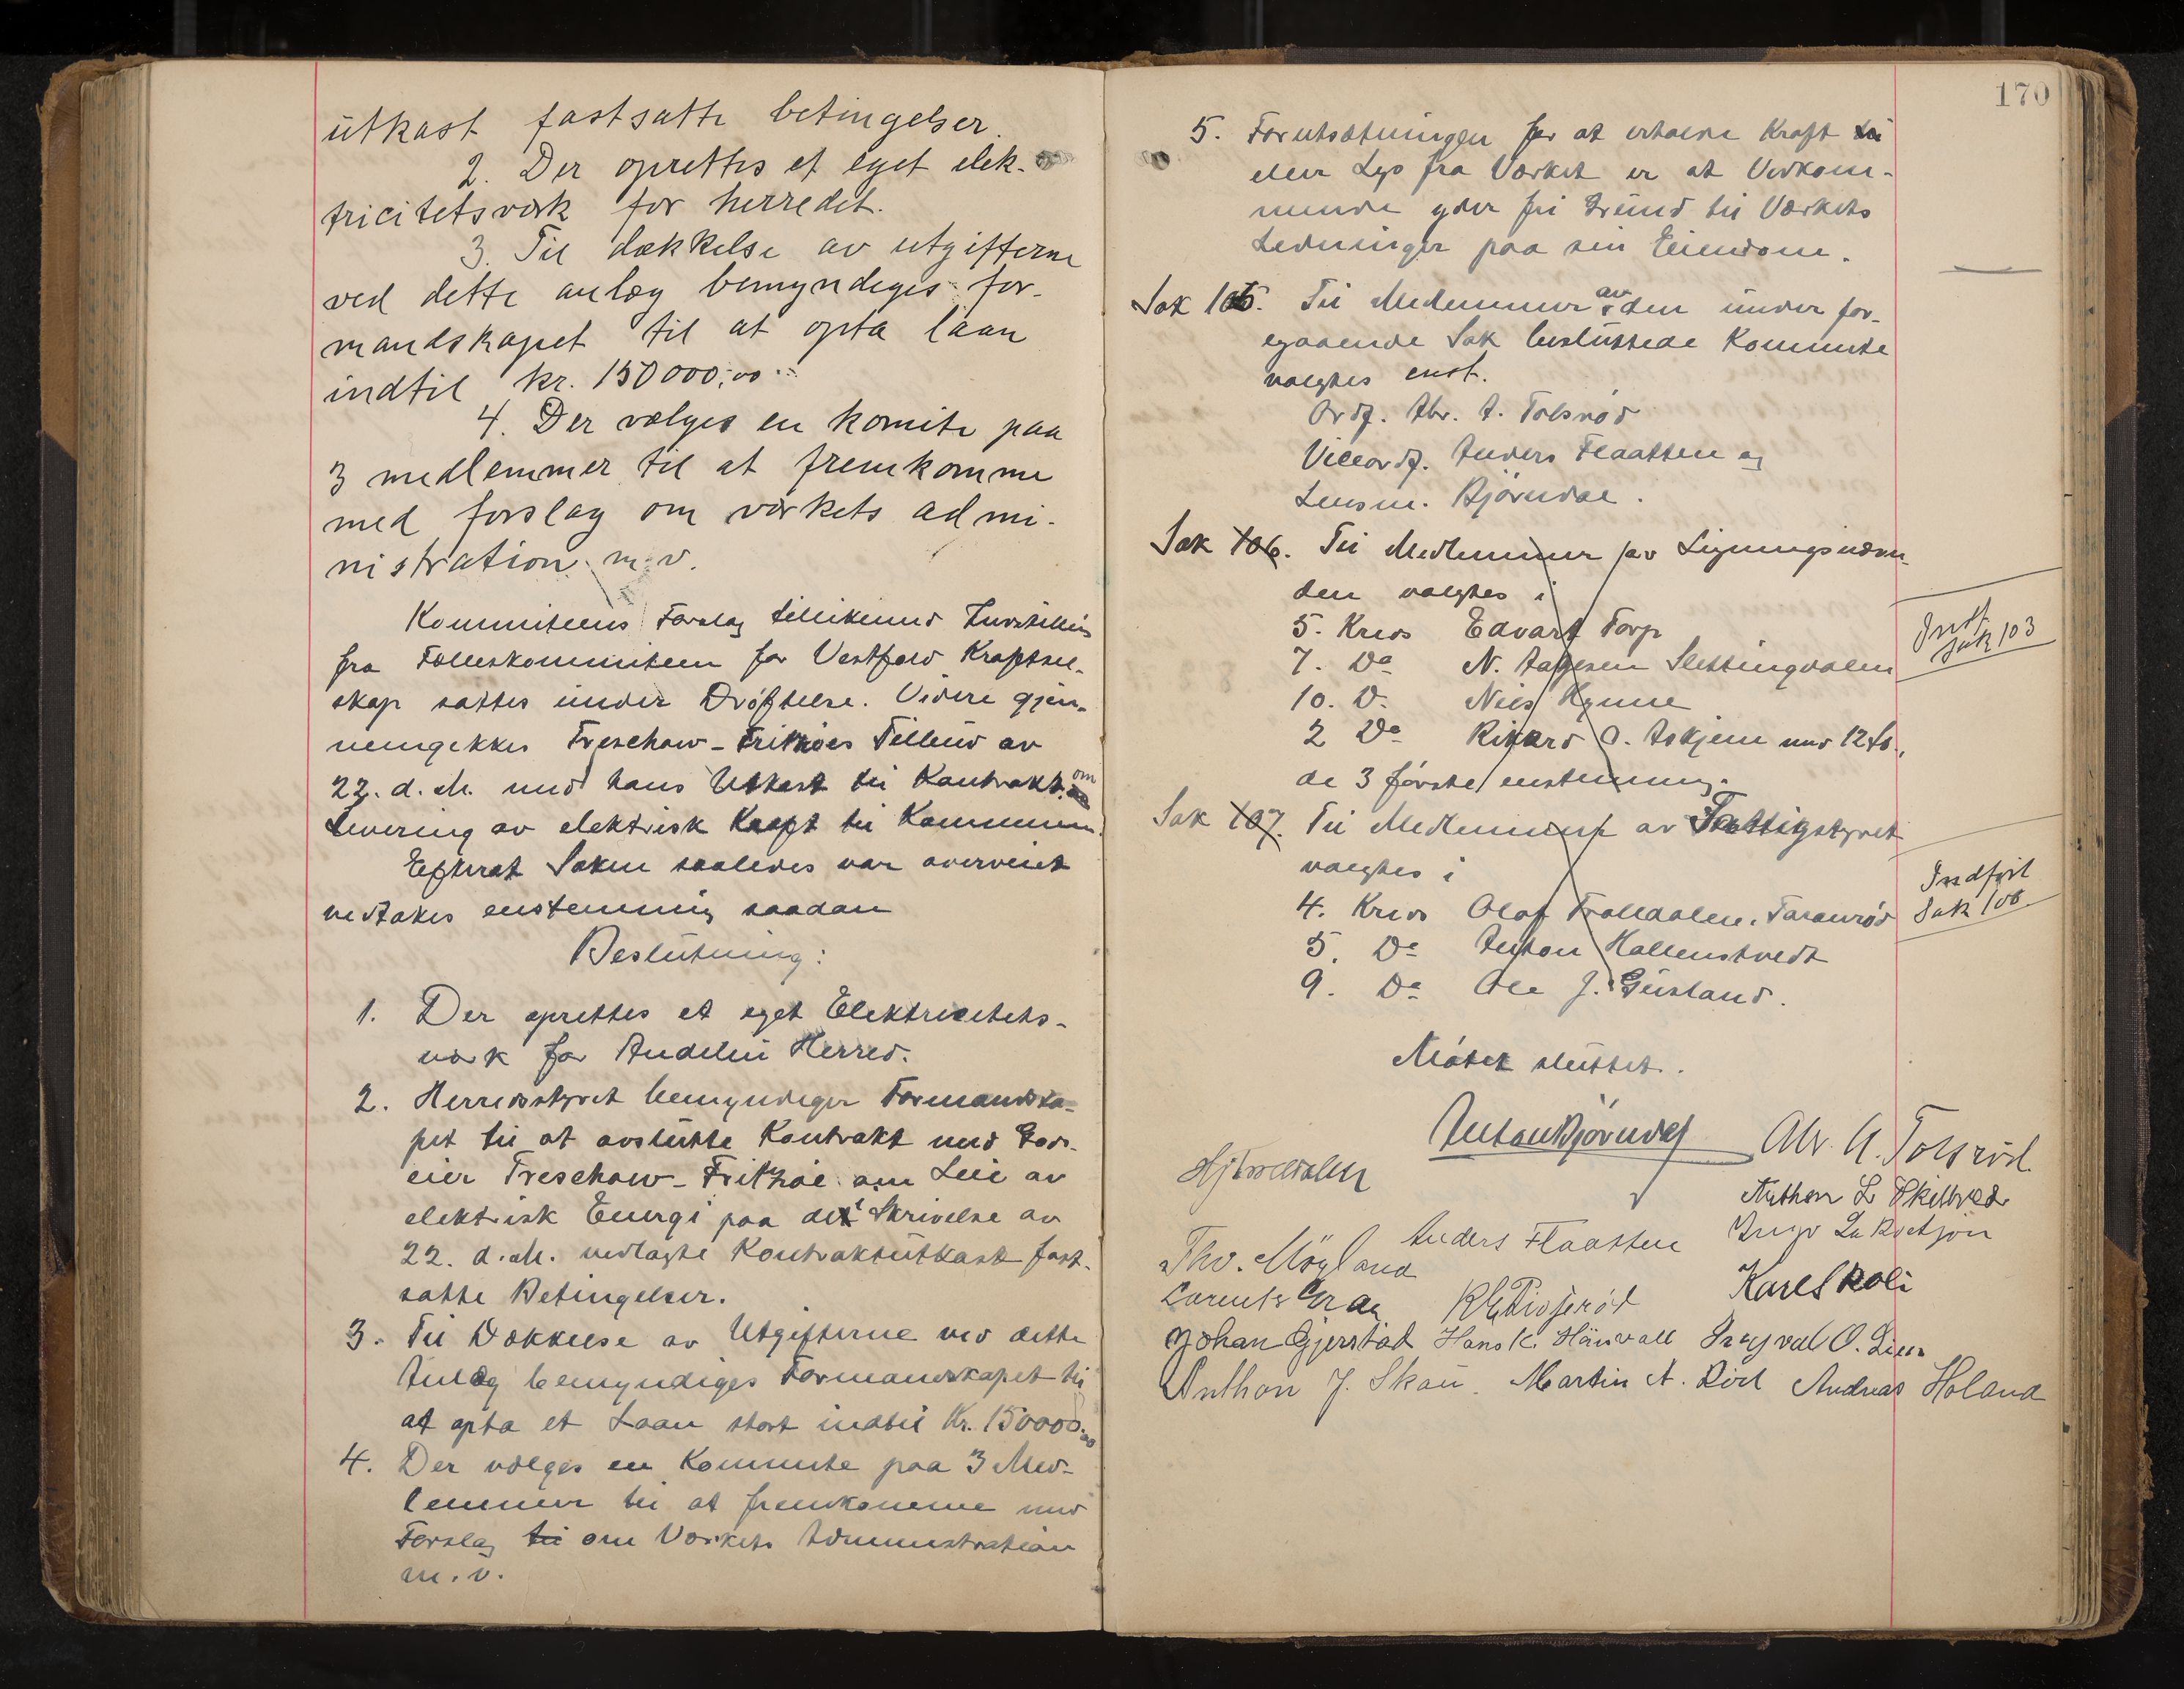 utkast fastsatte betingelser.
2. Der oprettes et eget elek-
tricitetsverk for herredet.
3. Til dækkelse av utgifterne
ved dette anlæg bemyndiges for-
mandskapet til at opta laan
indtil kr. 150000,00.
4. Der vælges en komite paa
3 medlemmer til at fremkomme
med forslag om verkets admi-
nistration m.v.
Kommiteens Forslag tillikemed Indstilling
fra Fælleskommiteen for Vestfold Kraftsel-
skap sattes under Drøftelse. Videre gjen-
nemgikkes Treschow-Fritzøes Tilbud av
22. d.M. med hans Utkast til Kontrakt om
Levering av elektrisk Kraft til Kommunen.
Efterat Saken saaledes var overveiet
vedtokes enstemmig saadan
Beslutning:
1. Der oprettes et eget Elektricitets-
verk for Andebu Herred.
2. Herredsstyret bemyndiger Formandska-
pet til at avslutte Kontrakt med Gods-
eier Treschow-Fritzøe om Leie av
elektrisk Energi paa de i Skrivelse av
22. d.M. vedlagte Kontraktutkast fast-
satte Betingelser.
3. Til Dækkelse av Utgifterne ved dette
Anlæg bemyndiges Formandskapet til
at opta et Laan stort indtil Kr. 150000.00
4. Der vælges en Kommite paa 3 Med-
lemmer til at fremkomme med
Forslag til om Verkets Administration
m.v.
170
5. Forutsætningen for at erholde Kraft
eller Lys fra Værket er at Vedkom-
mende yder fri Grund til Værkets
Ledninger paa sin Eiendom.
Sak 105. Til Medlemmer av den under for-
egaaende Sak besluttede Kommite
valgtes enst.
Ordf. Abr. A. Tolsrød
Viceordf. Anders Flaatten og
Lensm. Bjørndal.
Sak 106. Til Medlemmer av Ligningsnæm-
den valgtes i
5. Kreds Edvart Torp
7. Do N. Aagesen Slettingdalen
10. D. Nils Hynne
2 Do Rikard O. Askjem med 12 st.,
de 3 første enstemmig.
Indf.
Sak 103
Sak 107. Til Medlemmer av Fattigstyret
valgtes i
4. Kreds Olaf Trolldalen, Taranrød
5. Do Anton Hallenstvedt
9. Do Ole J. Gusland.
Indført
Sak 108
Møtet sluttet.
Anton Bjørndal Abr. A. Tolsrød
Hj Trolldalen
Anthon L. Skilbred
Thv. Møyland Anders Flaatten
Lorents Gran
Karl Skoli
Johan Gjerstad Hans K. Haugvall Ingvald O. Lien
Anthon J. Skau. Martin A. Rød Andreas Holand